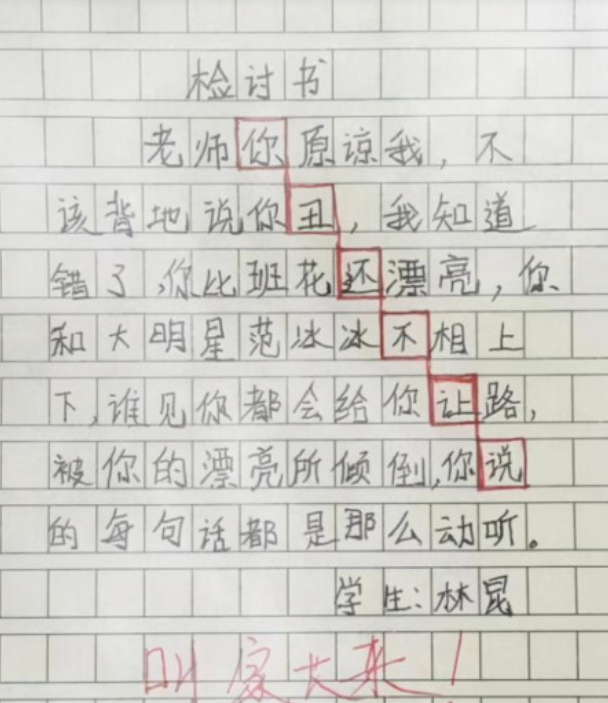 检讨书
老师你原谅我，不
该背地说你丑，我知道
错了，你比班花还漂亮，你
和大明星范冰冰不相上
下，谁见你都会给你让路，
被你的漂亮所倾倒，你说
的每句话都是那么动听。
学生：林昆
叫家长来！